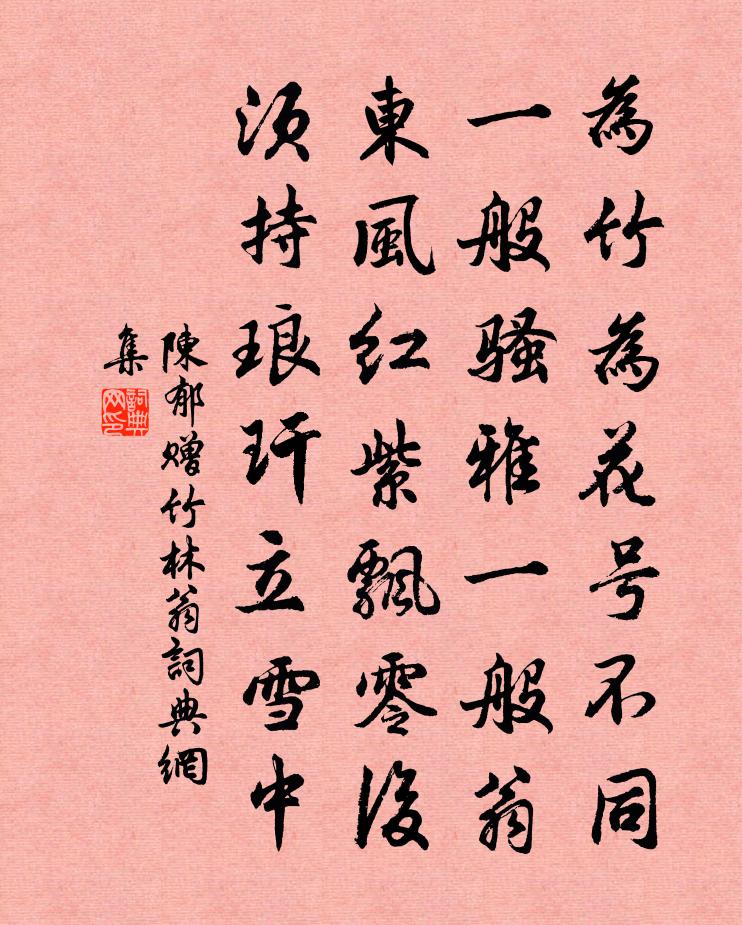 為竹為花号不同
一般騷雅一般翁
東風紅紫飄零後
須持琅玕立雪中
陳郁赠竹林翁詞典網
集
詞典
网印